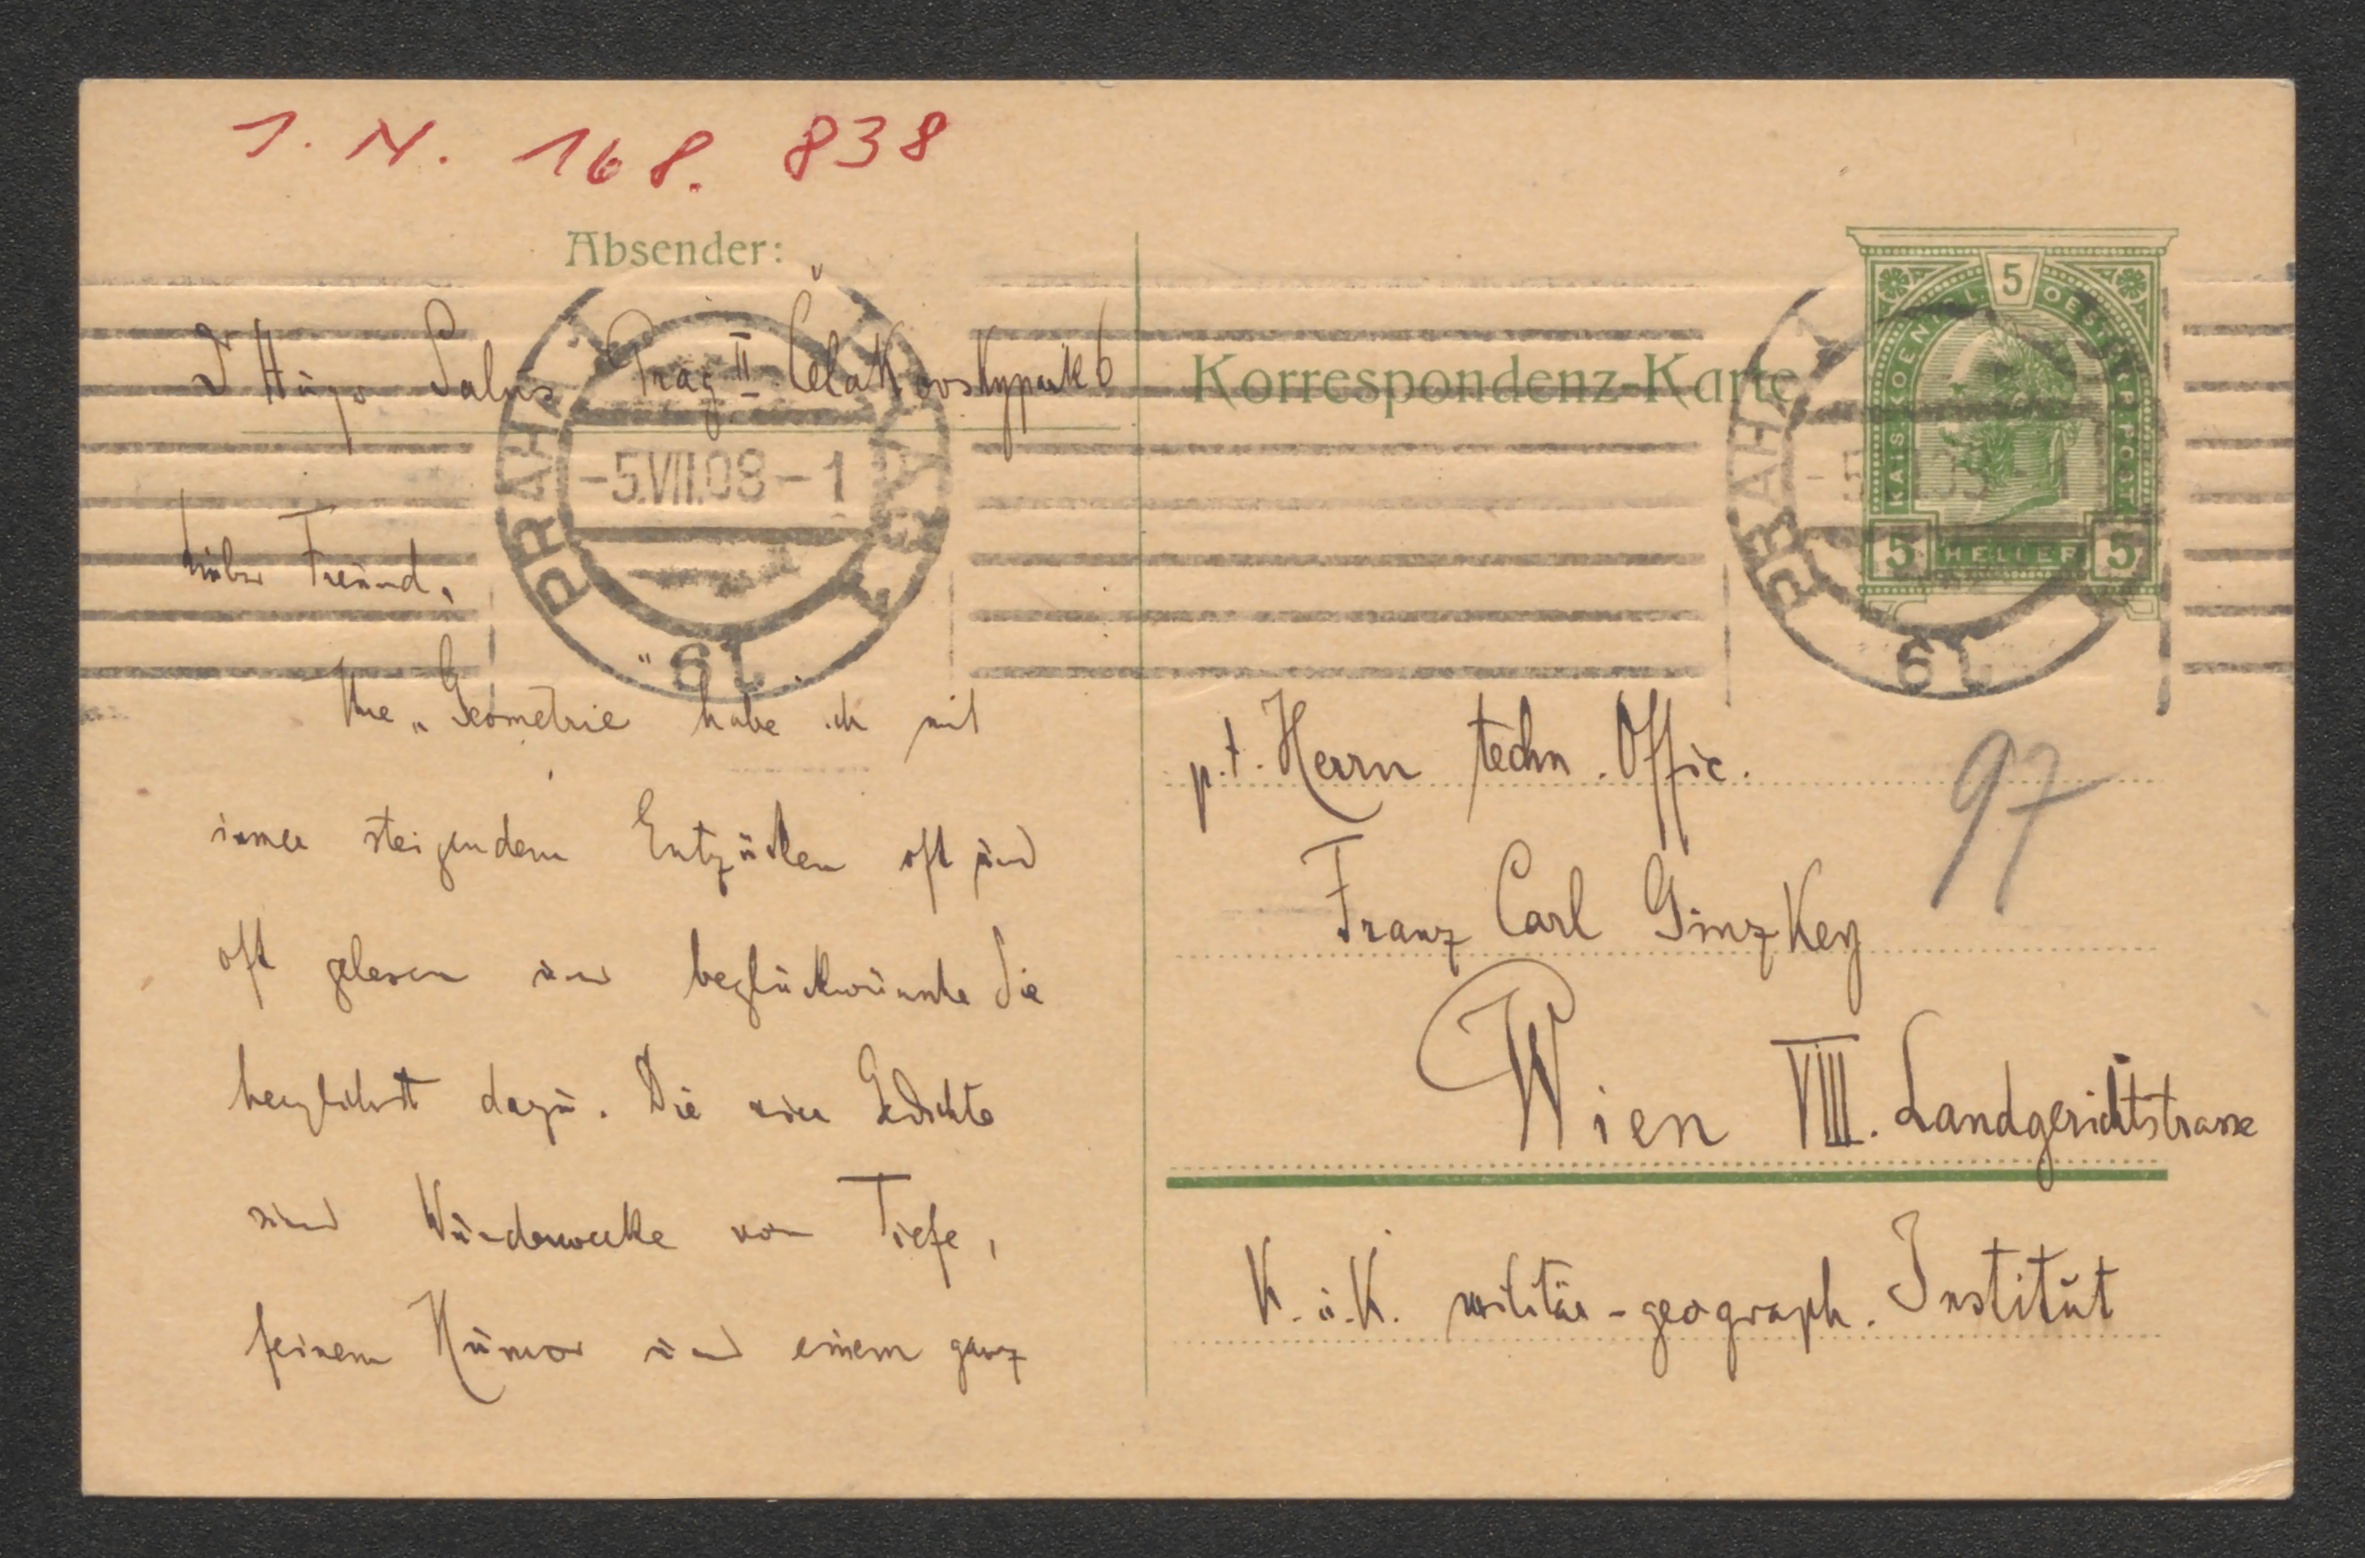 I. N. 168.838
Absender:
Dr Hugo Salus Prag II Čelakovskypark 6
Lieber Freund,
Ihre „Geometrie" habe ich mit
immer steigendem Entzücken oft und
oft gelesen und beglückwünsche Sie
herzlichst dazu. Die vier Gedichte
sind Wunderwerke von Tiefe,
feinem Humor und einem ganz
PRAHA 1
-5.VII.08-1
PRAG 1
19
Korrespondenz-Karte
KAIS. KOENIGL. OESTERR. POST
5
5 HELLER 5
PRAHA 1
19
97
p.t. Herrn techn. Offic.
Franz Carl Ginzkey
Wien VIII. Landgerichtstrasse
K. u. K. militär-geograph. Institut